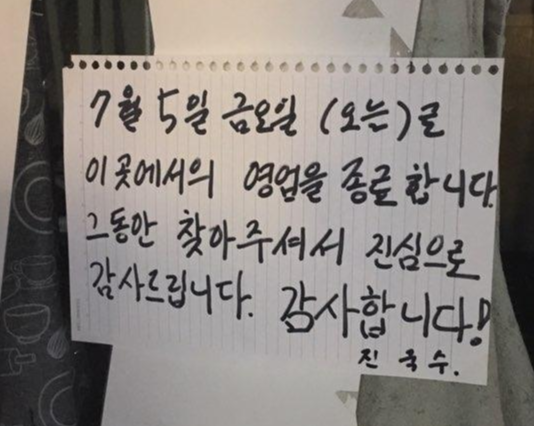 7월 5일 금요일 (오늘)로
이곳에서의 영업을 종료합니다
그동안 찾아주셔서 진심으로
감사드립니다. 감사합니다!
진국수.